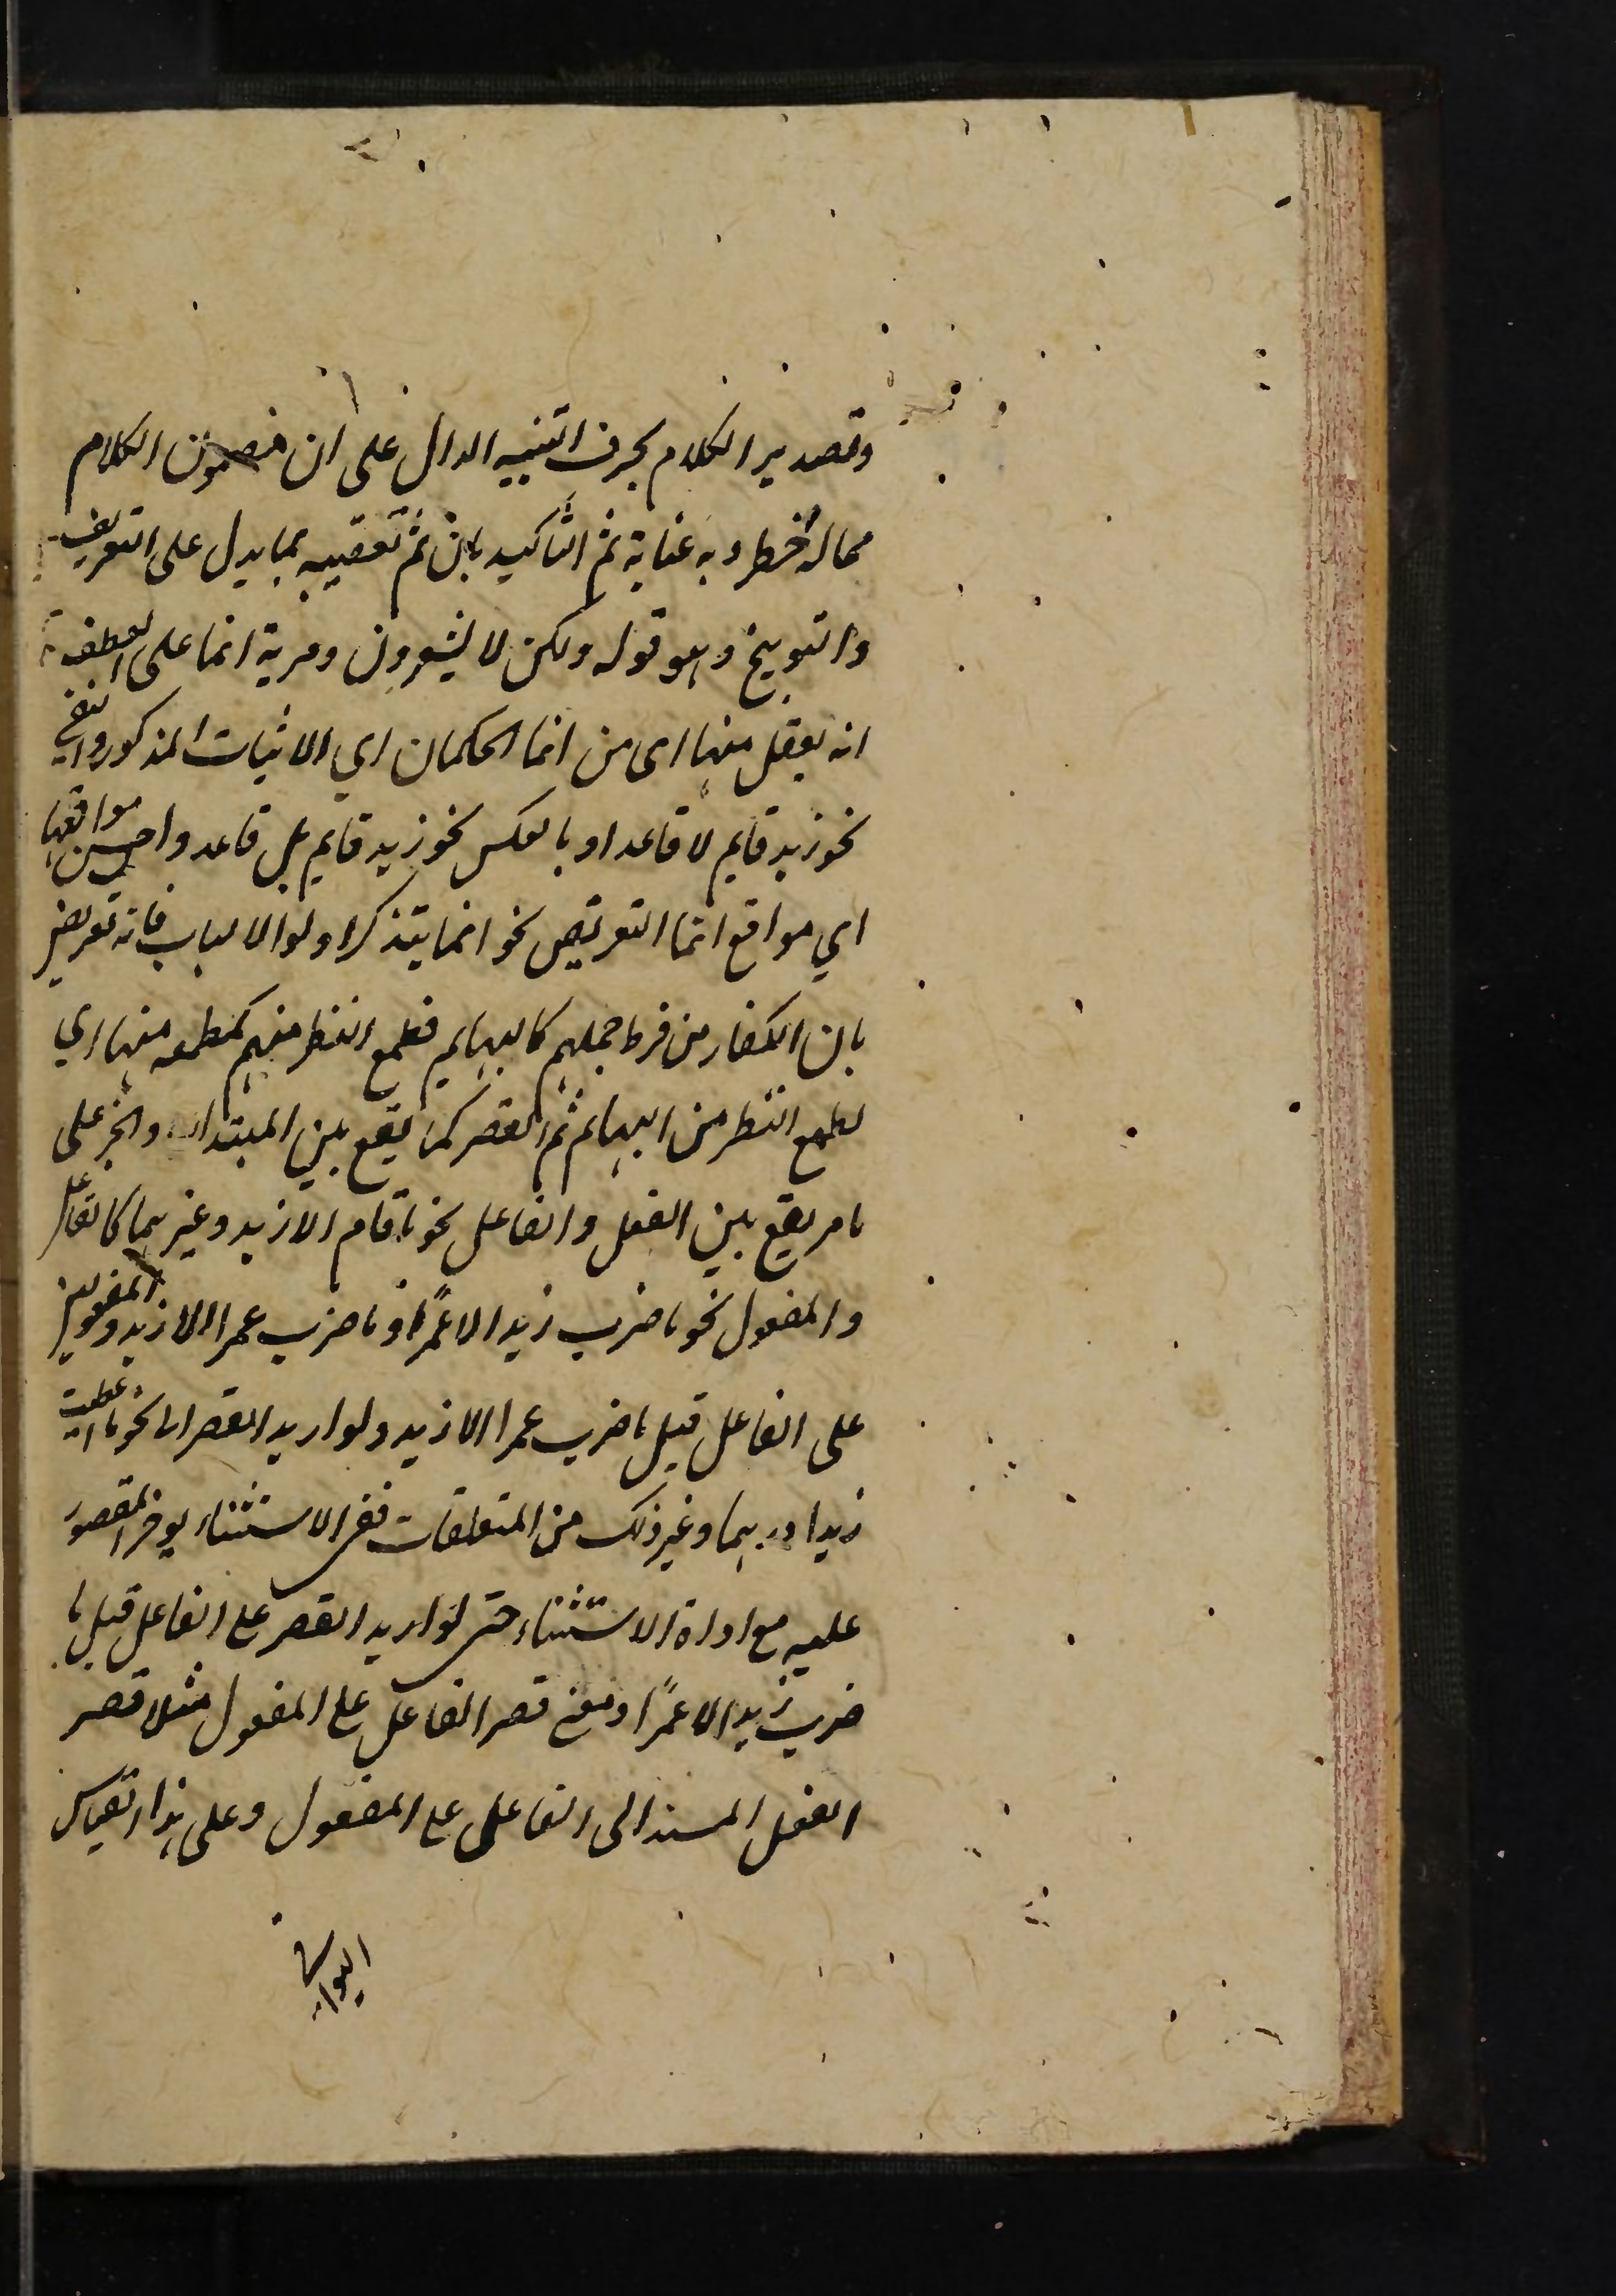 وتصدير الكلام بحرف التنبيه الدال على ان مضمون الكلام
مما له خطر وبه عناية ثم التاكيد بان ثم تعقيبه بما يدل على التقريع
والتوبيخ وهو قوله ولكن لا يشعرون ومزية انما على العطف
انه يعقل منها اى من انما الحكمان اي الاثبات المذكور والنفي
نحو زيد قايم لا قاعد او بالعكس نحو زيد قايم بل قاعد واحسن مواقعها
اي مواقع انما التعريض نحو انما يتذكر اولوا الالباب فانه تعريض
بان الكفار من فرط جهلهم كالبهايم فطمع النظر منهم كطمعه منها اي
كطمع النظر من البهايم ثم القصر كما يقع بين المبتدا والخبر على
ما مر يقع بين الفعل والفاعل نحو ما قام الا زيد وغيرهما كالفاعل
والمفعول نحو ما ضرب زيد الا عمرًا وما ضرب عمرا الا زيد والمفعولين
على الفاعل قيل ما ضرب عمرا الا زيد ولو اريد القصر نحو ما اعطيت
زيدا درهما وغير ذلك من المتعلقات ففى الاستثناء يوخر المقصور
عليه مع اداة الاستثناء حتى لو اريد القصر على الفاعل قيل ما
ضرب زيد الا عمرًا ومعنى قصر الفاعل على المفعول مثلا قصر
الفعل المسند الى الفاعل على المفعول وعلى هذا القياس
البواقي